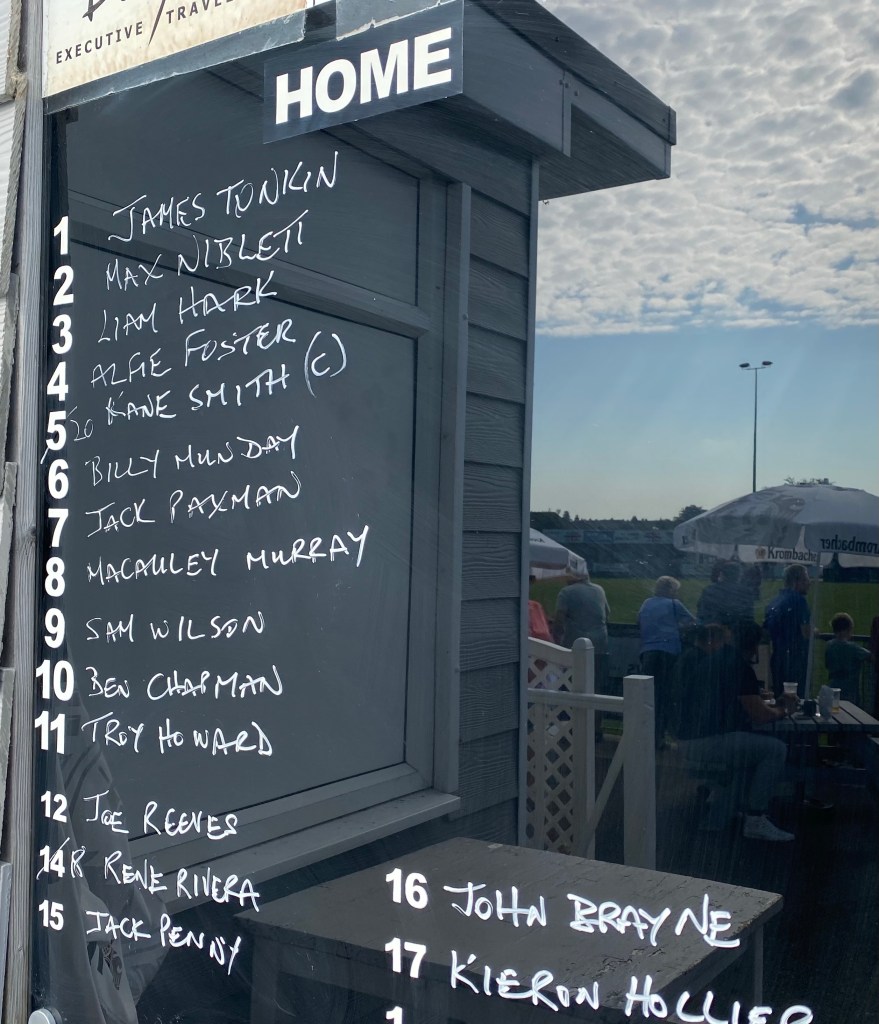 EXECUTIVE / TRAVEL
HOME
1 JAMES TONKIN
2 MAX NIBLETT
3 LIAM HARK
4 ALFIE FOSTER
5 20 KANE SMITH (C)
6 BILLY MUNDAY
7 JACK PAXMAN
8 MACAULEY MURRAY
9 SAM WILSON
10 BEN CHAPMAN
11 TROY HOWARD
12 JOE REEVES
14 18 RENE RIVERA
15 JACK PENNY
16 JOHN BRAYNE
17 KIERON HOLLIER
1
Krombacher
Krombacher